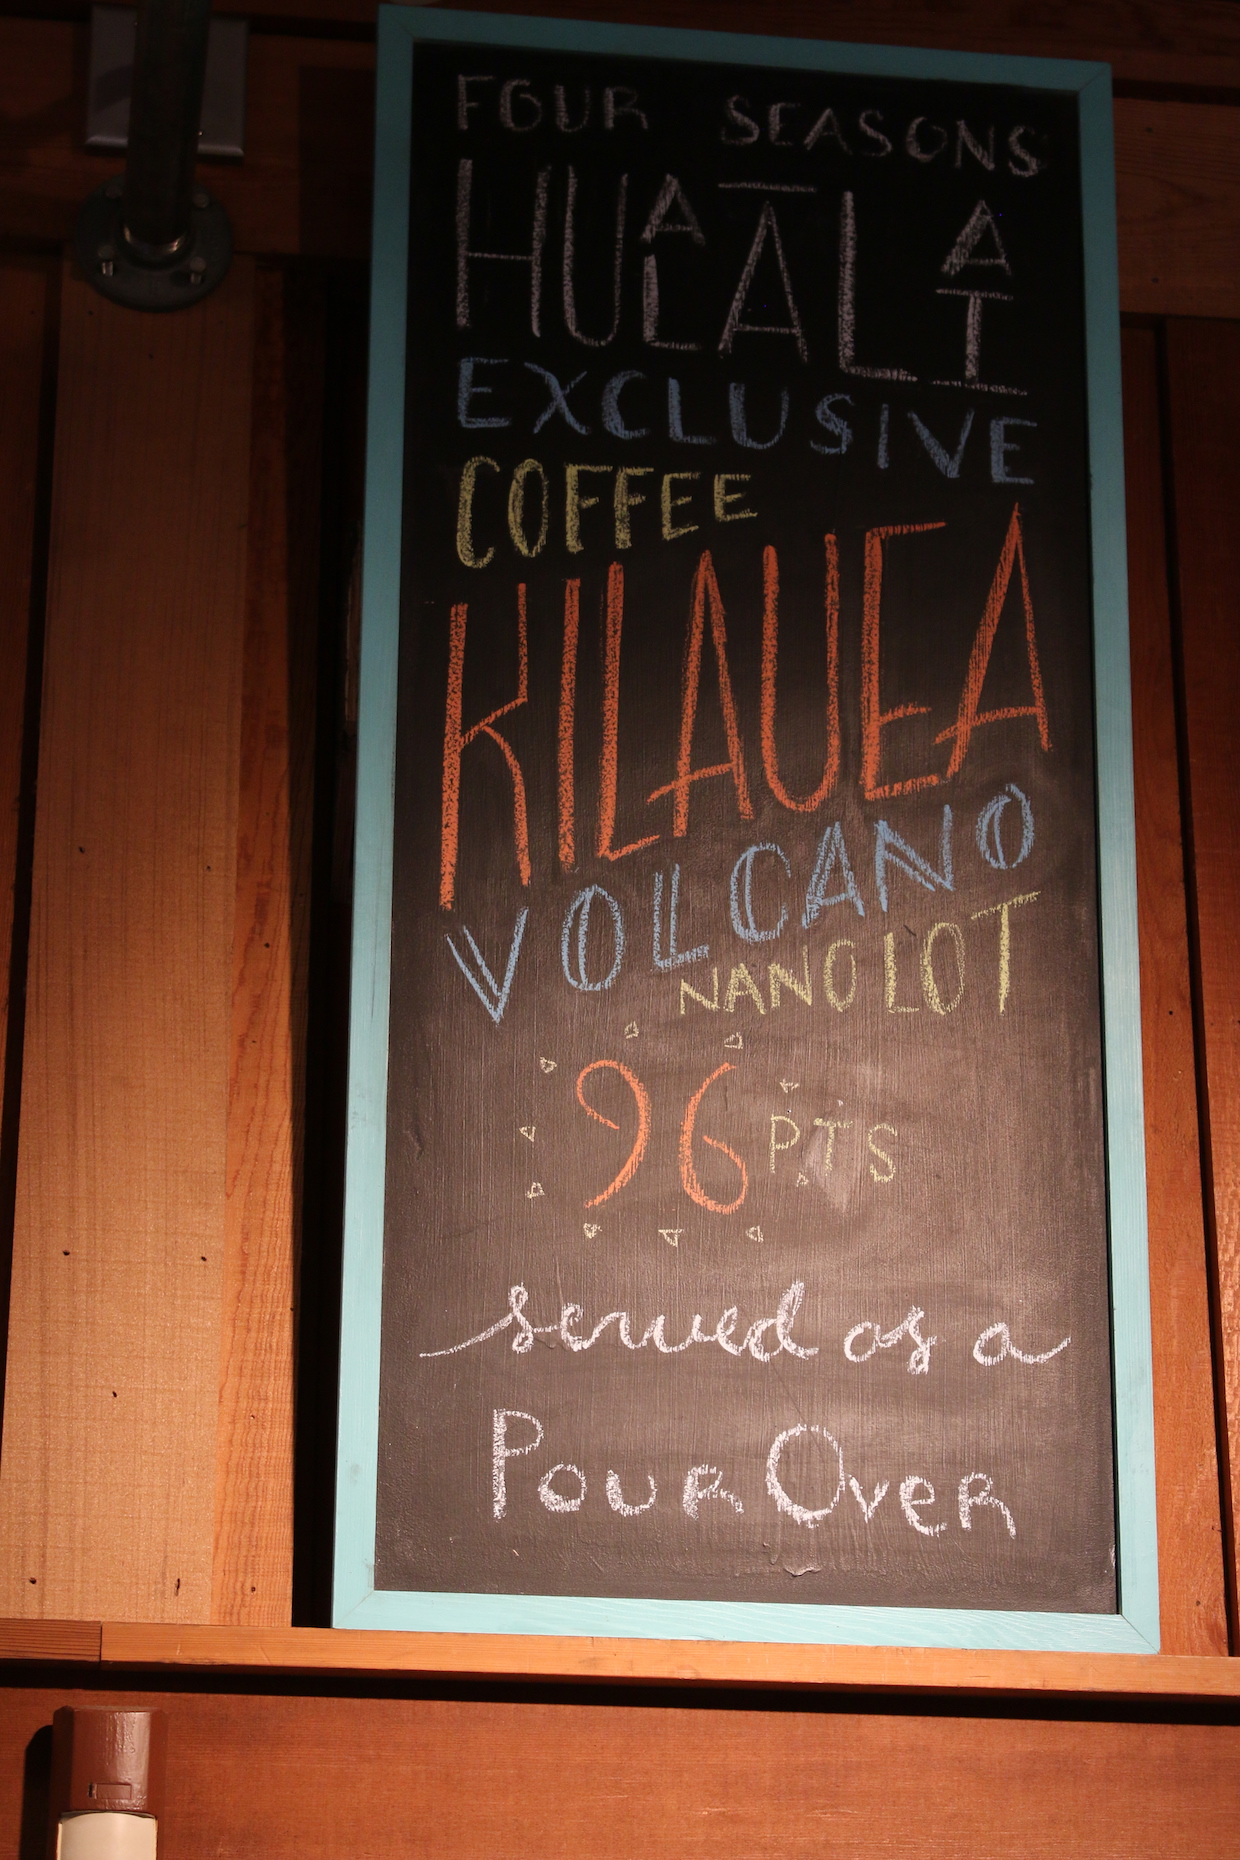 FOUR SEASONS
HUALĀLAI
EXCLUSIVE
COFFEE
KILAUEA
VOLCANO
NANO LOT
96 PTS
served as a
POUR OVER